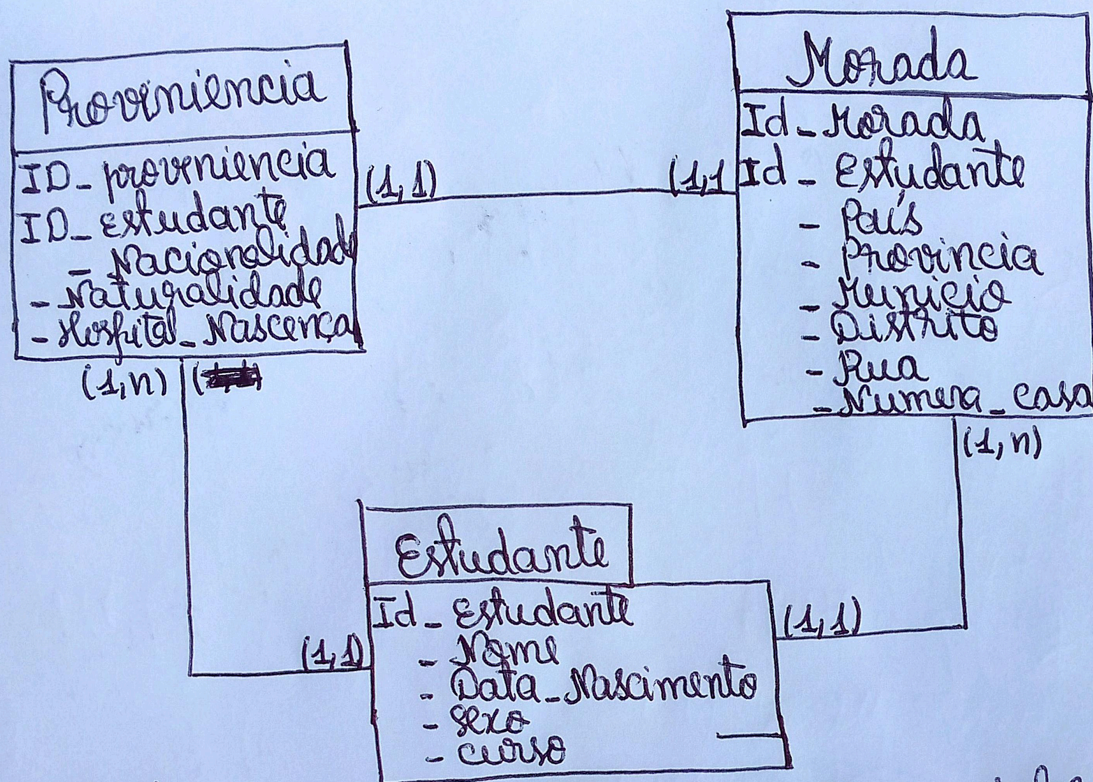 Proviniencia
ID_proviniencia
ID_estudante
_ Nacionalidade
- Naturalidade
- Hospital_Nascença
(1,1)
(1,1
(1,n)
Morada
Id_Morada
Id_Estudante
- País
- Província
- Municio
- Distrito
- Rua
- Numera_casa
(1,n)
Estudante
Id_Estudante
- Nome
- Data_Nascimento
- sexo
- curso
(1,1)
(1,1)